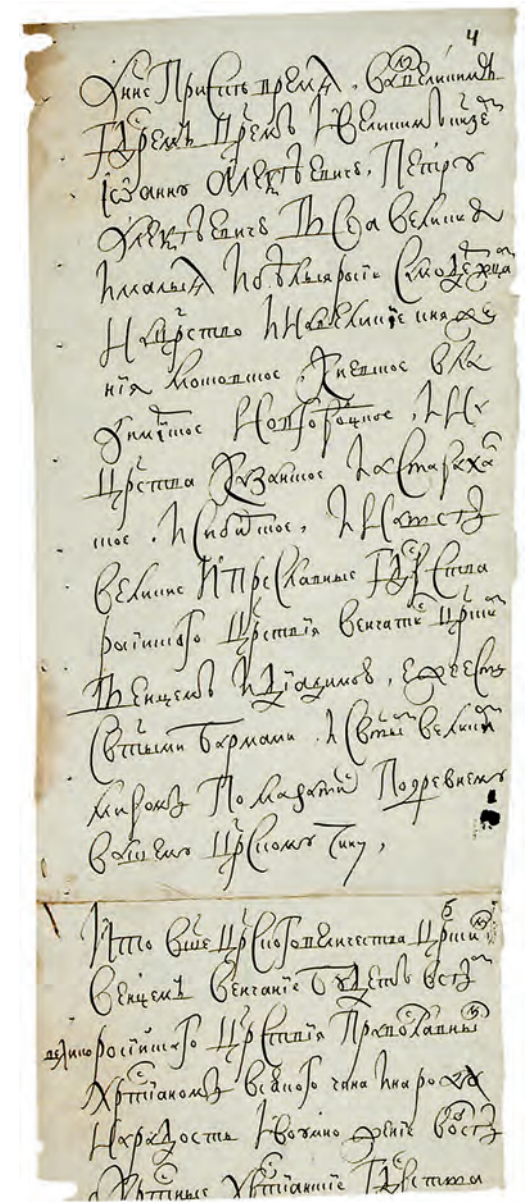 4
Ннѣ приспѣ время, ва великимъ
гдремъ цремъ и великимъ кнзе
Іѡанну Алеѯѣевичь, Петру
Алеѯѣевичь всеа великия
и малыя и бѣлыя росіи самодежца
на црство и на великие княже
ния московское, киевское вла
димское новгороцкое, и на
црства казанское и астараха
ское, и сибиское, и на всѣ
великие и преславные гдрства
росискаго црствія венчати црски
венцемъ и диадимою, еже есть
сѣтыми бармами. и сѣты великим
миромъ помазати по древнему
вашему црскому чину,
И то вше црского величества црски
венцемъ венчаніе будетъ всѣ
велико росискаго црствія православны
хртианомъ всякого чина и народа
на радость и во умножение востѣ
хртианские гдрства